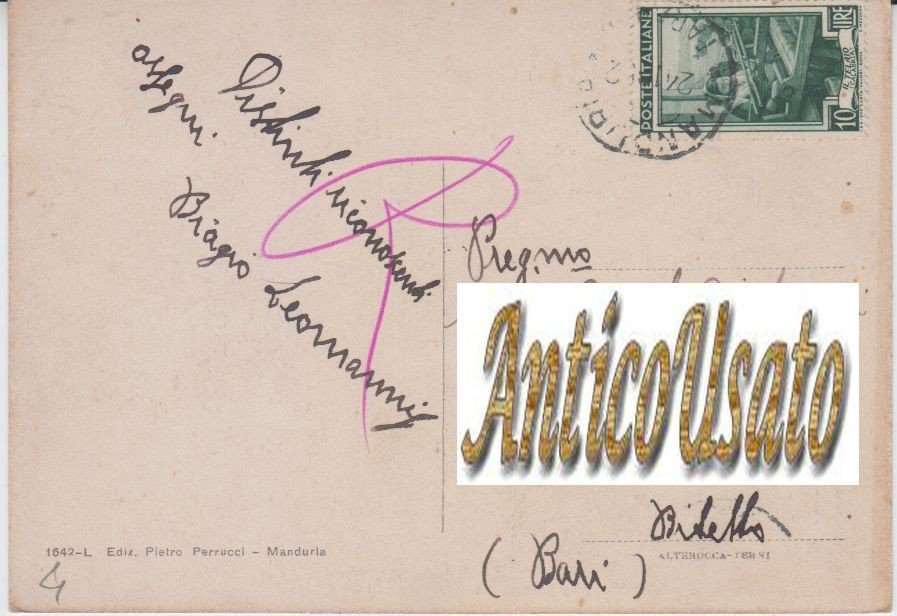 Distinti riconoscenti
ossequi
Biagio Leomanni
POSTE ITALIANE
LIRE
10
IL TELAIO
(CALABRIA)
MANDURIA
Preg.mo
AnticoUsato
Bitetto
(Bari)
ALTEROCCA-TERNI
1642-L Ediz. Pietro Perrucci - Manduria